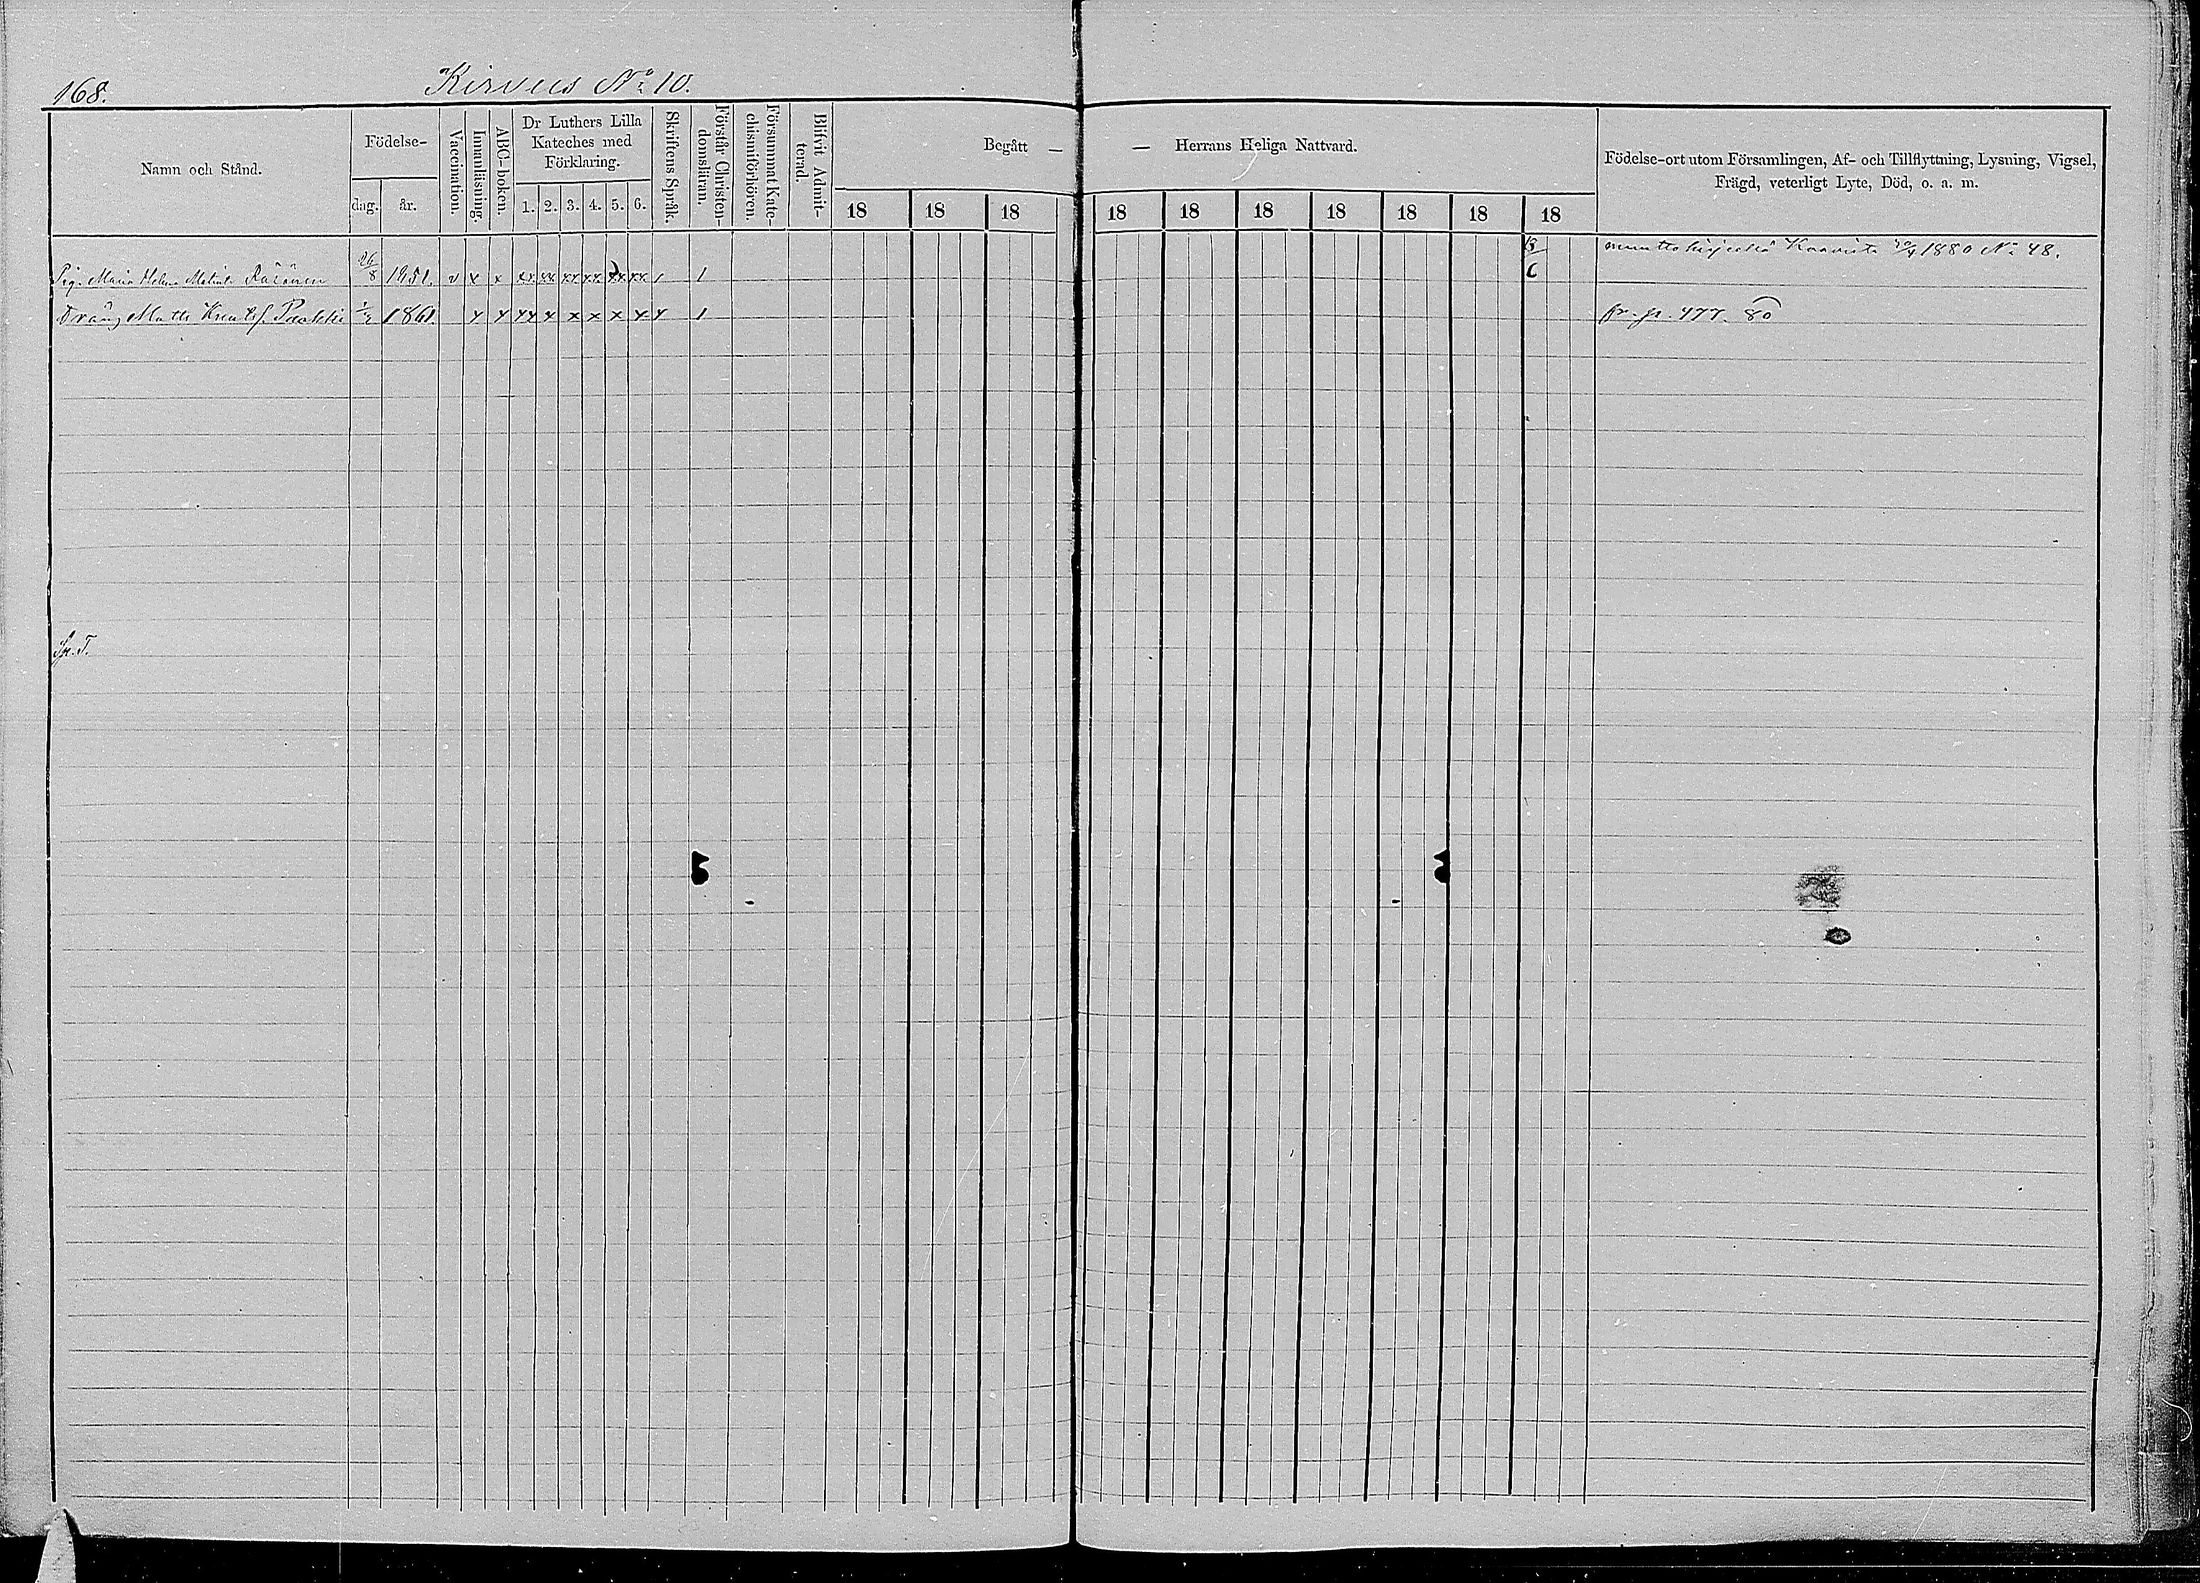 168.
Kirvus No 10.
Namn och Stånd.
Födelse-
dag.
år.
Vaccination.
Innanläsning.
ABC-boken.
Dr Luthers Lilla
Kateches med
Förklaring.
1. 2. 3. 4. 5. 6.
Skriftens Språk.
Förstår Christen-
domsläran.
Försummat Kate-
chismiförhören.
Blifvit Admit-
terad.
Begått —
— Herrans Heliga Nattvard.
18 18 18 18 18 18 18 18 18 18
Födelse-ort utom Församlingen, Af- och Tillflyttning, Lysning, Vigsel,
Frägd, veterligt Lyte, Död, o. a. m.
Pig. Maria Helena Räsänen 26/8 1851. v x x xx xx xx xx xx xx 1 1
muuttokirjalla 1880 No 48.
Dräng Matts 1861. x x xx x x x x x x 1
fr. 477. 80